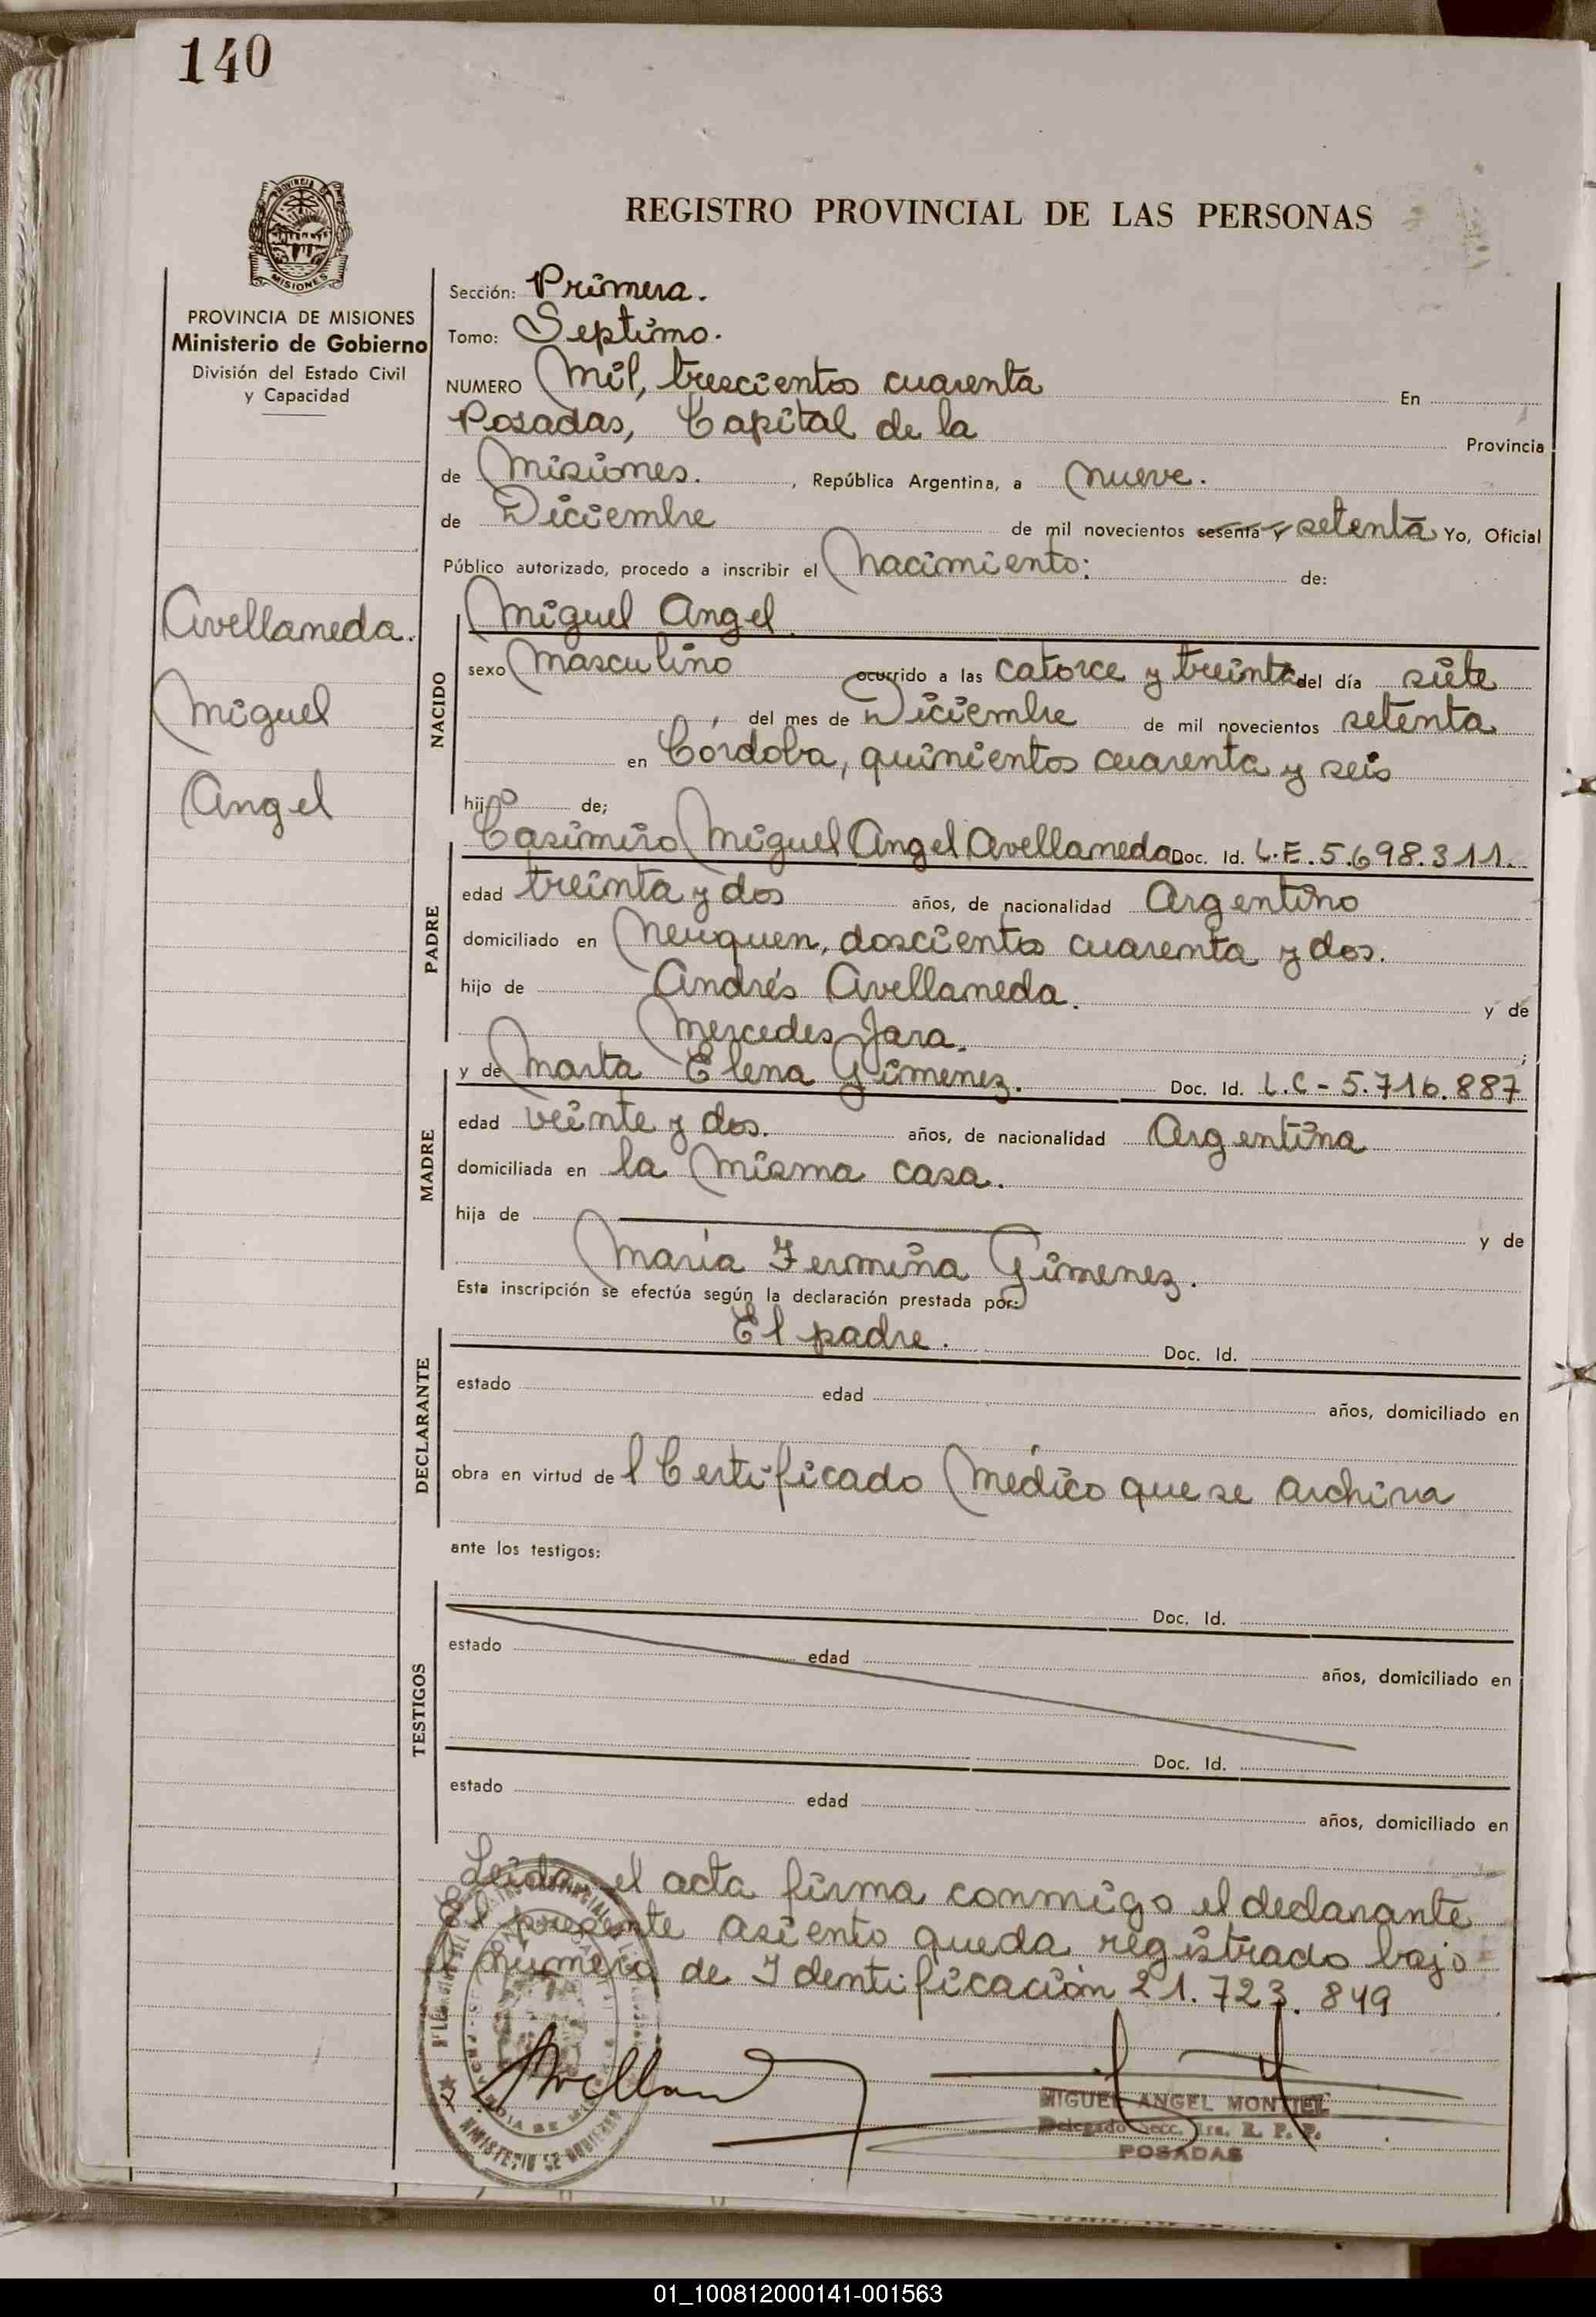 140
PROVINCIA DE
MISIONES
REGISTRO PROVINCIAL DE LAS PERSONAS
PROVINCIA DE MISIONES
Ministerio de Gobierno
División del Estado Civil
y Capacidad
Avellaneda.
Miguel
Angel
Sección: Primera.
Tomo: Septimo.
NUMERO Mil, trescientos cuarenta En
Posadas, Capital de la Provincia
de Misiones. , República Argentina, a nueve.
de Diciembre de mil novecientos sesenta y setenta Yo, Oficial
Público autorizado, procedo a inscribir el Nacimiento: de:
NACIDO
Miguel Angel
sexo Masculino ocurrido a las catorce y treinta del día siete
, del mes de Diciembre de mil novecientos setenta
en Córdoba, quinientos cuarenta y seis
hijo de;
PADRE
Casimiro Miguel Angel Avellaneda Doc. Id. L.E. 5.698.311.
edad treinta y dos años, de nacionalidad Argentino
domiciliado en Neuquen, doscientos cuarenta y dos.
hijo de Andrés Avellaneda. y de
Mercedes Jara. ;
MADRE
y de Marta Elena Gimenez. Doc. Id. L.C - 5.716.887
edad veinte y dos. años, de nacionalidad Argentina
domiciliada en la misma casa.
hija de y de
María Fermina Gimenez.
Esta inscripción se efectúa según la declaración prestada por:
DECLARANTE
El padre. Doc. Id.
estado edad años, domiciliado en
obra en virtud de l Certificado Médico que se archiva
ante los testigos:
TESTIGOS
Doc. Id.
estado edad años, domiciliado en
Doc. Id.
estado edad años, domiciliado en
Leida el acta firma conmigo el declarante
El presente asiento queda registrado bajo
el número de Identificación 21.723.849
MIGUEL ANGEL MONTIEL
Delegado Secc. 1ra. R. P. P.
POSADAS
01_100812000141-001563